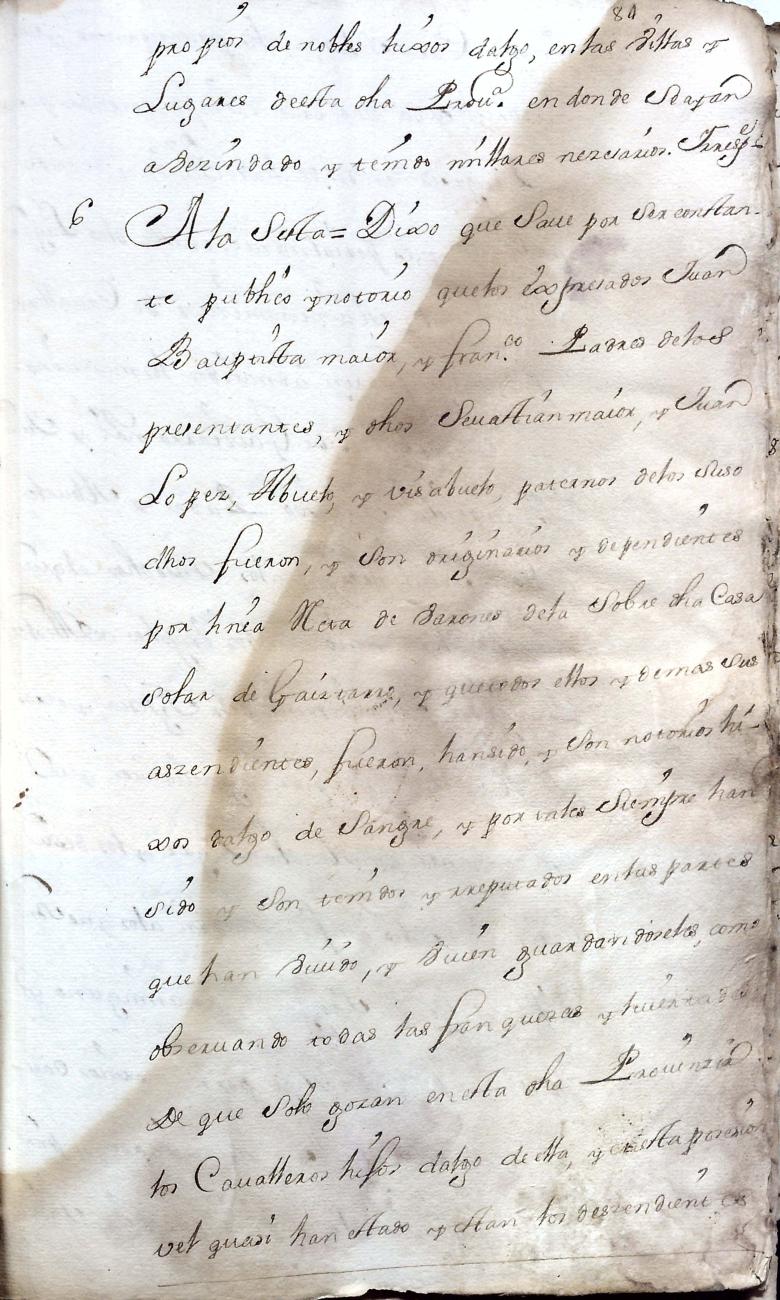 84
propios de nobles hixos dalgo, en las Villas y
Lugares de esta dha Prov.ª en donde Se ayan
avezindado y tenido millares nezesarios. Y resp.e
6 A la Sesta = Dixo que Save por ser constan-
te publico y notorio que los expresados Juan
Bauptista maior, y fran.co Padres de los
presentantes, y dhos Sevastian maior, y Juan
Lopez, Abuelo, y visabuelo, paternos de los suso
dhos fueron, y son originarios y dependientes
por linea Recta de varones de la Sobre dha Casa
solar de y que todos ellos y demas sus
aszendientes, fueron, han sido, y son notorios hi-
xos dalgo de Sangre, y por tales Siempre han
sido y son tenidos y rreputados en las partes
que han Viuido, y Viuen guardandoseles, como
obseruando todas las franquezas y livertades
De que solo gozan en esta dha Prouinzia
los Caualleros hijos dalgo de ella, y en esta posesion
vel quasi han estado y estan los deszendientes